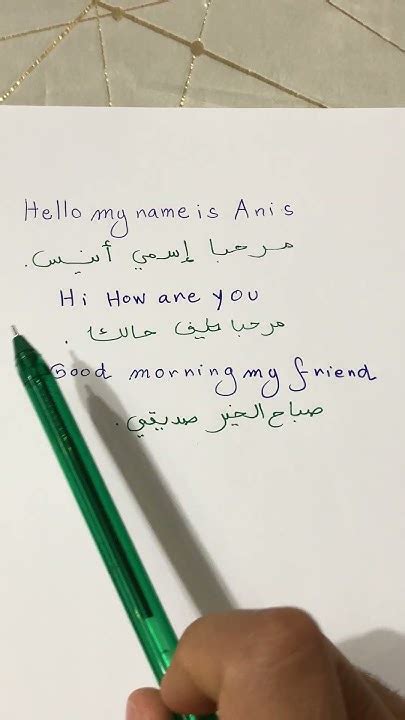 Hello my name is Anis
مرحبا إسمي أنيس.
Hi How are you
مرحبا كيف حالك.
Good morning my friend
صباح الخير صديقي.